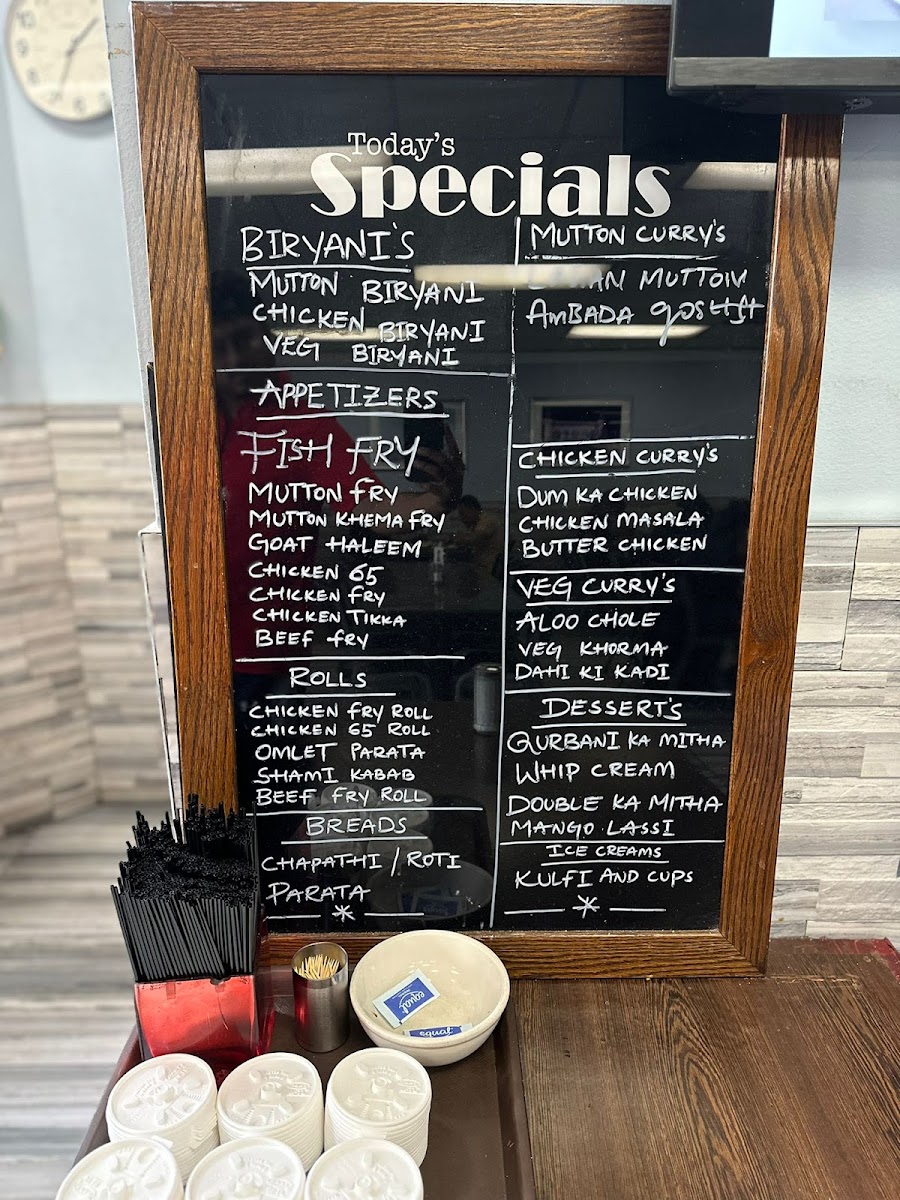 Today's
Specials
BIRYANI'S
MUTTON BIRYANI
CHICKEN BIRYANI
VEG BIRYANI
APPETIZERS
FISH FRY
MUTTON FRY
MUTTON KHEMA FRY
GOAT HALEEM
CHICKEN 65
CHICKEN FRY
CHICKEN TIKKA
BEEF FRY
ROLLS
CHICKEN FRY ROLL
CHICKEN 65 ROLL
OMLET PARATA
SHAMI KABAB
BEEF FRY ROLL
BREADS
CHAPATHI / ROTI
PARATA
MUTTON CURRY'S
MUTTON
AMBADA GOSHT
CHICKEN CURRY'S
DUM KA CHICKEN
CHICKEN MASALA
BUTTER CHICKEN
VEG CURRY'S
ALOO CHOLE
VEG KHORMA
DAHI KI KADI
DESSERT'S
QURBANI KA MITHA
WHIP CREAM
DOUBLE KA MITHA
MANGO LASSI
ICE CREAMS
KULFI AND CUPS
equal
equal